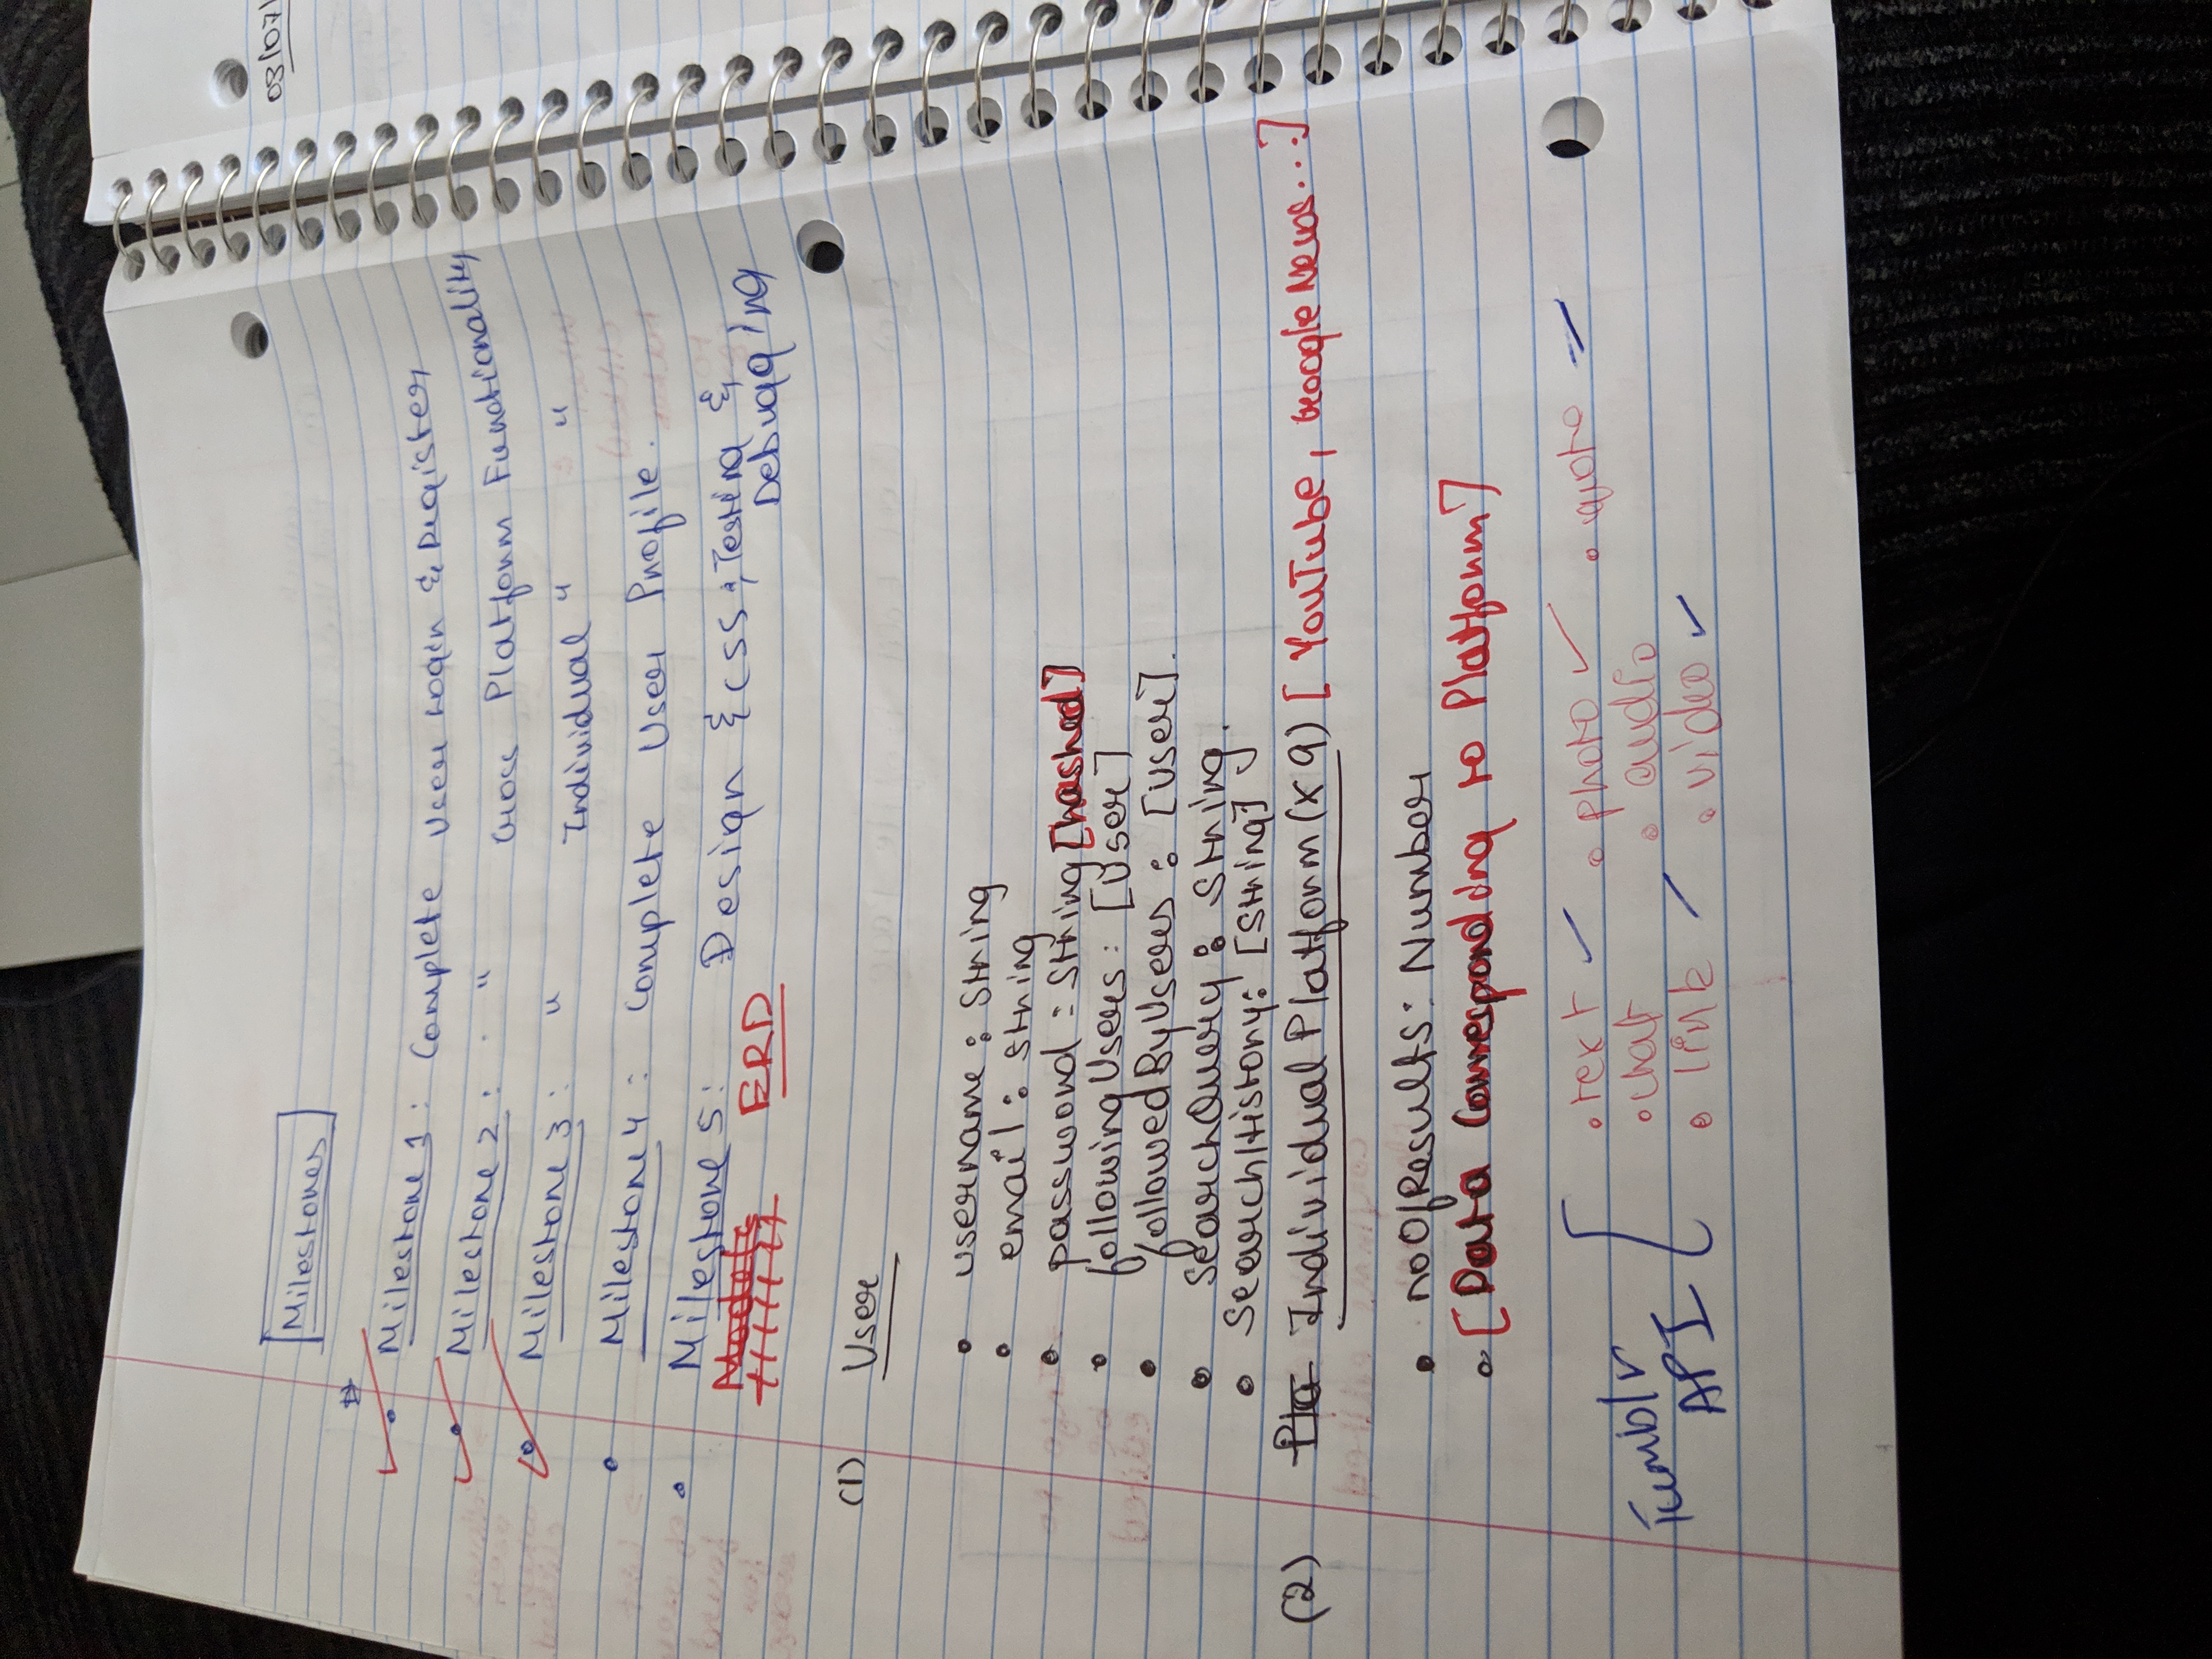 03/07/
Milestones
Milestone 1: Complete User Login & Register
Milestone 2: " Cross Platform Functionality
Milestone 3: " Individual " "
Milestone 4: Complete User Profile.
Milestone 5: Design & CSS; Testing &
Debugging
Models ERD
(1) User
• username: String
• email: String
• password: String [hashed]
• followingUsers: [User]
• followedByUsers: [User].
• SearchQuery: String.
• SearchHistory: [String]
(2) Pla Individual Platform (x 9) [YouTube, Google News...]
• noOfResults: Number
• [Data Corresponding to Platform]
Tumblr API
• text ✓ • photo ✓ • quote ✓
• chat • audio
• link ✓ • video ✓